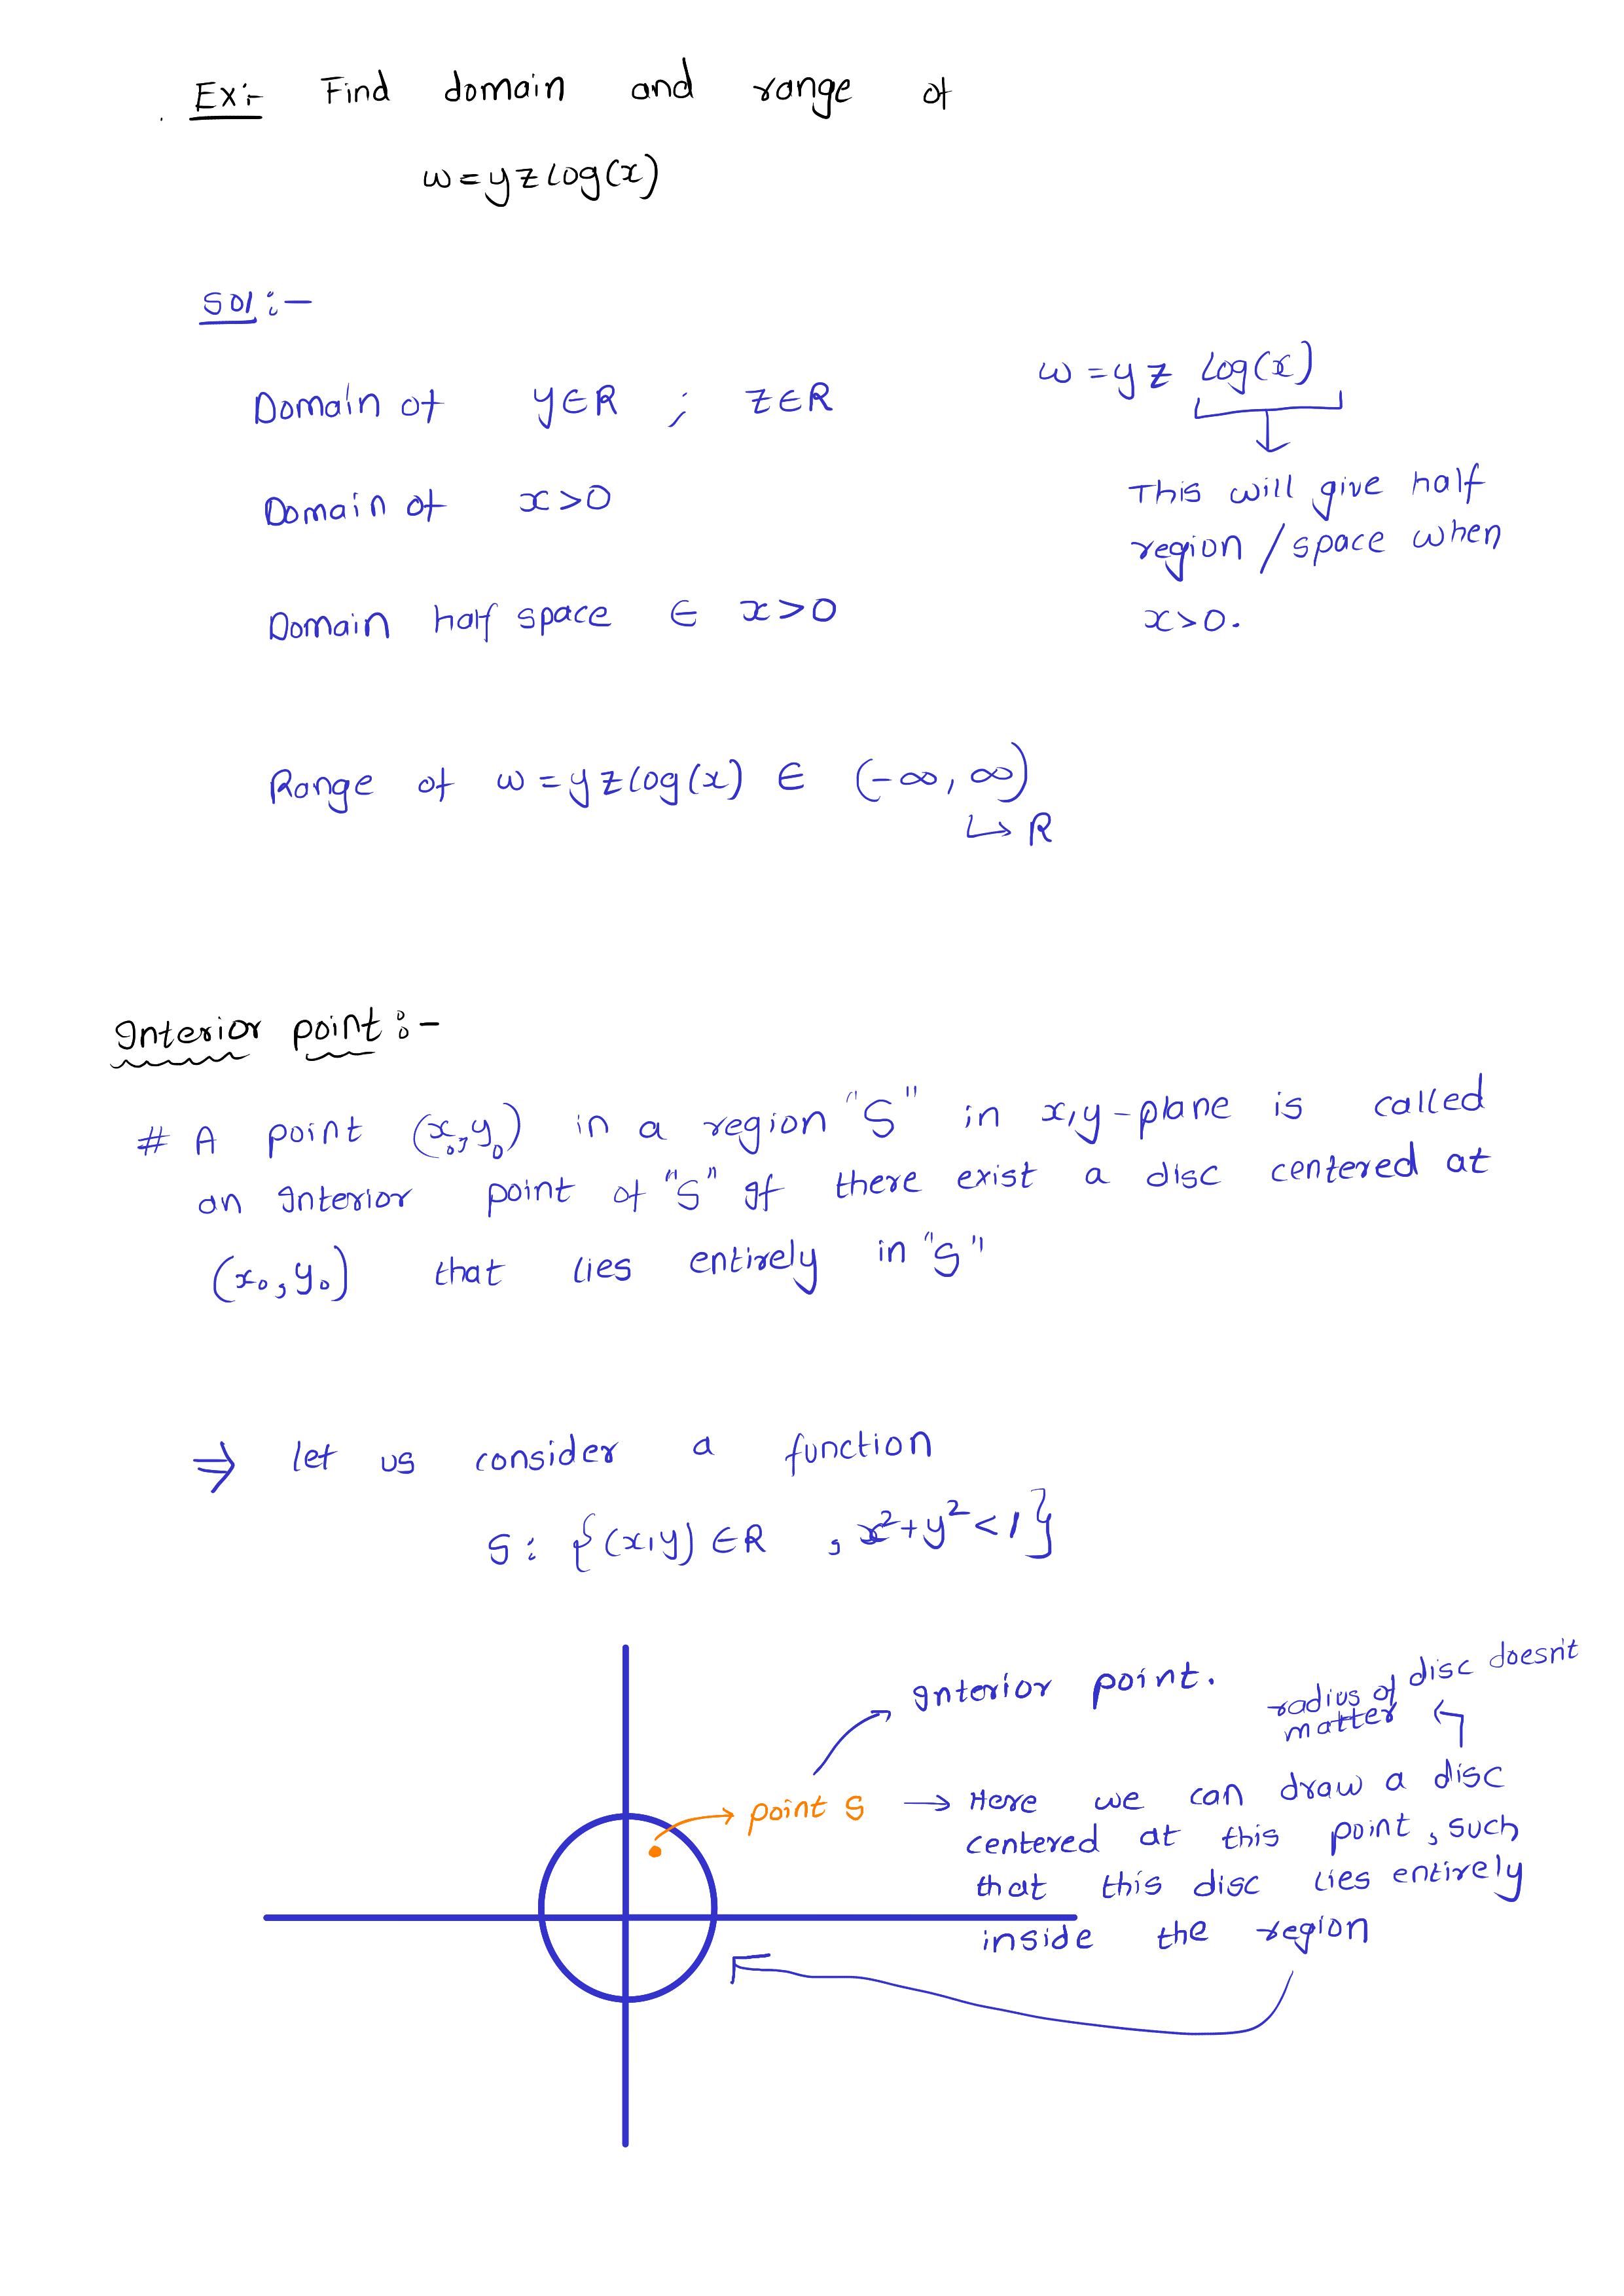 Ex:- Find domain and range of
w=yzlog(x)
Sol:-
w=yz log(x)
Domain of y∈R ; z∈R
This will give half
region/space when
x>0.
Domain of x>0
Domain half space ∈ x>0
Range of w=yzlog(x) ∈ (-∞,∞)
↳ R
Interior point:-
# A point (x₀,y₀) in a region "S" in x,y-plane is called
an Interior point of "S" If there exist a disc centered at
(x₀,y₀) that lies entirely in "S"
⇒ let us consider a function
S: {(x,y)∈R , x²+y²<1}
Interior point.
radius of disc doesn't
matter
point S → Here we can draw a disc
centered at this point, such
that this disc lies entirely
inside the region